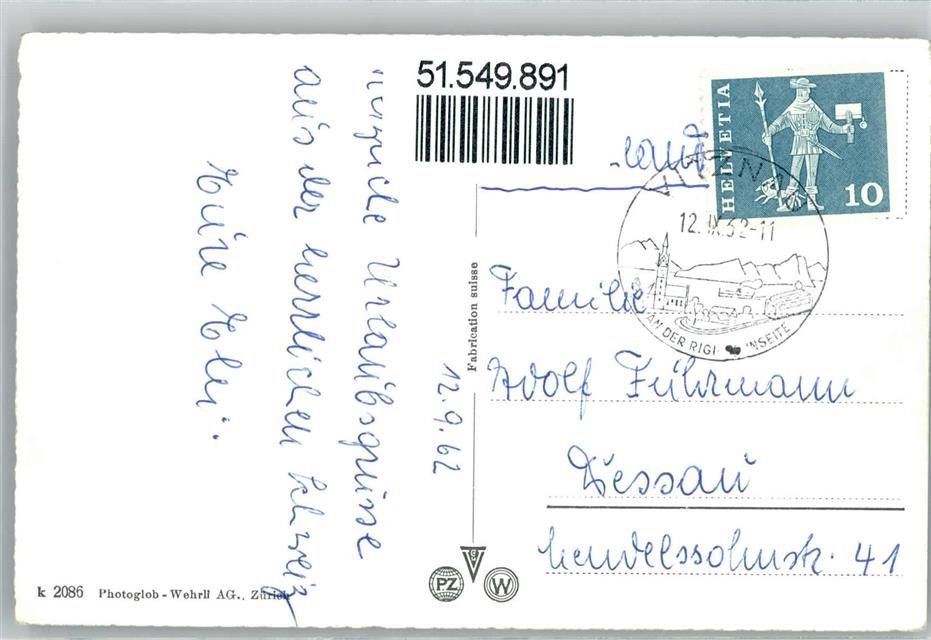 51.549.891
HELVETIA
10
VITZNAU
12.IX.62-11
AN DER RIGI NSEITE
Urlaubsgrüsse
aus der herrlichen Schweiz
Eure Elli.
12.9.62
Fabrication suisse
Familie
Adolf Führmann
Dessau
Mendelssohnstr. 41
PZ
W
k 2086 Photoglob-Wehrli AG., Zürich